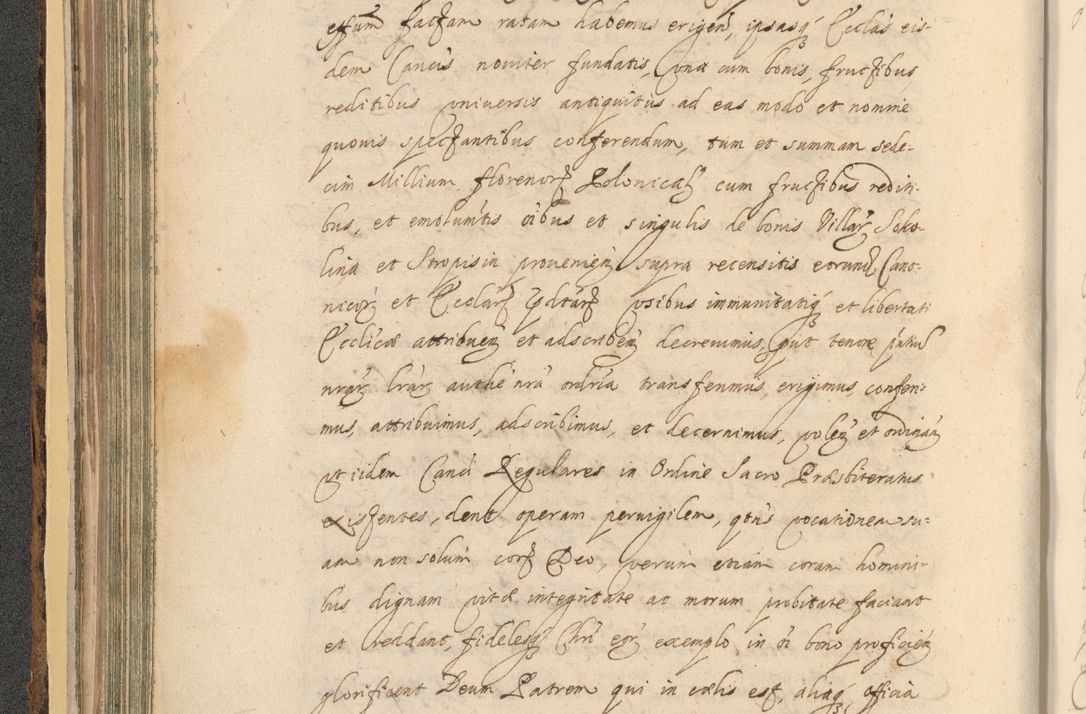 effum factam ratam habemus erigen, ipsasq Ecclas eis-
dem Cancis noviter fundatis, una cum bonis, fructibus,
reditibus universis antiquitus ad eas modo et nomine
quovis spectantibus conferendum, tum et summam sede-
cim Millium florenor Polonical cum fructibus rediti-
bus, et emolumtis oibus et singulis de bonis Villar Soko-
lina et Stropisin provenien supra recensitis eorund Cano-
nicor et Ecclar pdtar usibus immunitatiq et libertati
Ecclicae attribuen et adscriben decrevimus, put tenore pntiu
nrar lrar authe nra ordria transferimus, erigimus, conferi-
mus, attribuimus, adscribimus, et decernimus, volen et ordinan
ut iidem Canci Regulares in Ordine Sacro Praesbiteratus
existentes, dent operam pervigilem, qtus vocationem su-
am non solum cora Deo, verum etiam coram homini-
bus dignam vitae integritate ac morum probitate faciant
et reddant, fidelesq Chri eor exemplo in oi bono proficien
glorificent Deum Patrem qui in caelis est, aliaq officia